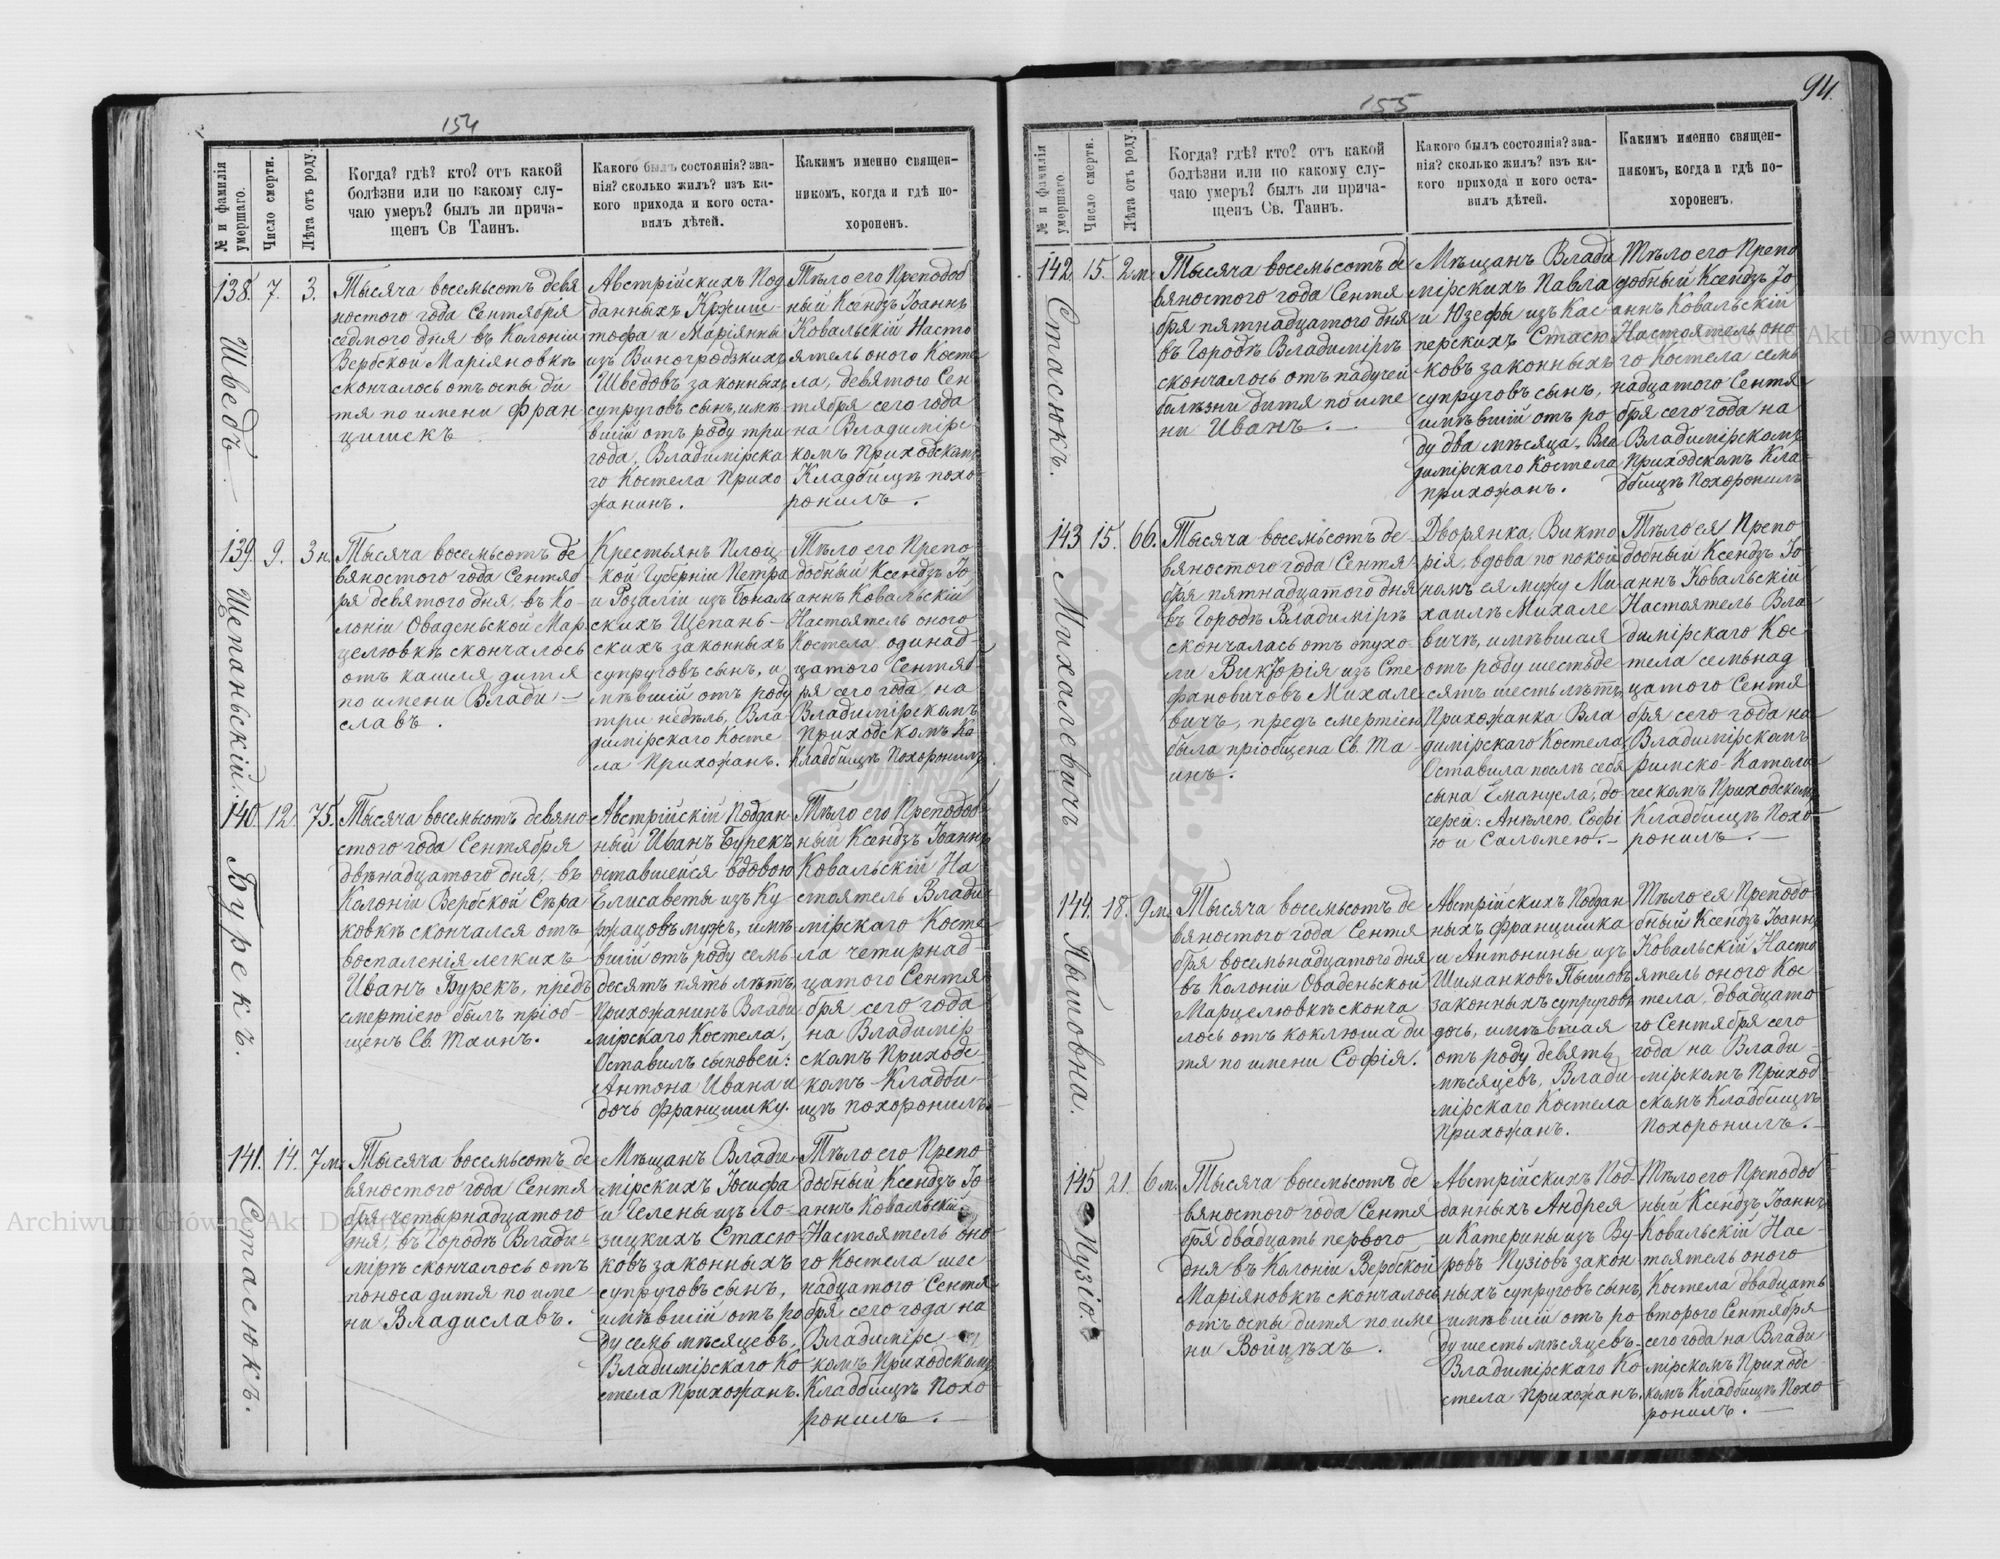 154
№ и фамилія умершаго.
Число смерти.
Лѣта отъ роду.
Когда? гдѣ? кто? отъ какой
болѣзни или по какому слу-
чаю умеръ? былъ ли прича-
щенъ Св Таинъ.
Какого былъ состоянія? зва-
нія? сколько жилъ? изъ ка-
кого прихода и кого оста-
вилъ дѣтей.
Какимъ именно священ-
никомъ, когда и гдѣ по-
хороненъ.
138. 7. 3.
Шведъ.
Тысяча восемьсотъ девя
ностого года Сентября
седмого дня въ Колоніи
Вербской Маріяновкѣ
скончалось отъ оспы ди
тя по имени Фран
цишекъ
Австрійскихъ Под
данныхъ Кржиш-
тофа и Маріянны
изъ Виногродзкихъ
Шведовъ законныхъ
супруговъ сынъ, имѣ
вшій отъ роду три
года, Владимірска
го Костела Прихо
жанинъ.
Тѣло его Преподоб
ный Ксендзъ Іоаннъ
Ковальскій Насто
ятель оного Косте
ла, девятого Сен
тября сего года
на Владимірс
комъ Приходскомъ
Кладбищѣ похо
ронилъ.
139. 9. 3 н.
Щепаньскій.
Тысяча восемьсотъ де
вяностого года Сентяб
ря девятого дня, въ Ко-
лоніи Оваденьской Мар
целювкѣ скончалось
отъ кашля дитя
по имени Влади-
славъ.
Крестьянъ Плоц
кой Губерніи Петра
и Розаліи изъ Гональ
скихъ Щепань-
скихъ законныхъ
супруговъ сынъ, и
мѣвшій отъ роду
три недѣль, Вла
димірскаго Косте
ла Прихожан.
Тѣло его Препо
добный Ксендзъ Іо
аннъ Ковальскій
Настоятель оного
Костела одинад
цатого Сентяб
ря сего года на
Владимірскомъ
Приходскомъ Ка
Кладбищѣ Похоронилъ.
140. 12 75.
Бурекъ.
Тысяча восемьсотъ девяно
стого года Сентября
двѣнадцатого дня, въ
Колоніи Вербской Сѣра
ковкѣ скончался отъ
воспаленія легкихъ
Иванъ Бурекъ, предъ
смертіею былъ пріоб-
щенъ Св. Таинъ.
Австрійскій Поддан
ный Иванъ Бурекъ
оставшейся вдовою
Елисаветы изъ Ку
ржацовъ мужъ, имѣ
вшій отъ роду семь
десятъ пять лѣтъ,
Прихожанинъ Влади
мірскаго Костела,
Оставилъ сыновей:
Антона Ивана и
дочь Францишку.
Тѣло его Преподоб
ный Ксендзъ Іоаннъ
Ковальскій На
стоятель Влади
мірскаго Косте
ла четирнад
цатого Сентя
бря сего года
на Владимір-
скомъ Приходс-
комъ Кладби-
щѣ похоронилъ.
141. 14. 7 м.
Стасюкъ.
Тысяча восемьсотъ де
вяностого года Сентя
бря четырнадцатого
дня, въ Городѣ Влади-
мірѣ скончалось отъ
поноса дитя по име
ни Владиславъ.
Мѣщанъ Влади
мірскихъ Іосифа
и Гелены изъ Ло-
зицкихъ Стасю
ковъ законныхъ
супруговъ сынъ,
имѣвшій отъ ро
ду семь мѣсяцевъ,
Владимірскаго Ко
стела Прихожан.
Тѣло его Препо
добный Ксендзъ Іо
аннъ Ковальскій
Настоятель оно
го Костела шес
надцатого Сентя
бря сего года на
Владимірс-
комъ Приходскомъ
Кладбищѣ Похо
ронилъ.
155
94.
№ и фамилія умершаго.
Число смерти.
Лѣта отъ роду.
Когда? гдѣ? кто? отъ какой
болѣзни или по какому слу-
чаю умеръ? былъ ли прича-
щенъ Св. Таинъ.
Какого былъ состоянія? зва-
нія? сколько жилъ? изъ ка-
кого прихода и кого оста-
вилъ дѣтей.
Какимъ именно священ-
никомъ, когда и гдѣ по-
хороненъ.
142. 15. 2 м.
Стасюкъ.
Тысяча восемьсотъ де
вяностого года Сентя
бря пятнадцатого дня
въ Городѣ Владимірѣ
скончалось отъ падучей
болѣзни дитя по име
ни Иванъ.
Мѣщанъ Влади
мірскихъ Павла
и Юзефы изъ Кас
перскихъ Стасю
ковъ законныхъ
супруговъ сынъ,
имѣвшій отъ ро
ду два мѣсяца, Вла
димірскаго Костела
прихожан.
Тѣло его Препо
добный Ксендзъ Іо
аннъ Ковальскій
Настоятель оно
го Костела семь
надцатого Сентя
бря сего года на
Владимірскомъ
Приходскомъ Кла
дбищѣ Похоронилъ
143 15. 66.
Михалевичъ
Тысяча восемьсотъ де-
вяностого года Сентя
бря пятнадцатого дня
въ Городѣ Владимірѣ
скончалась отъ опухо-
ли Викторія изъ Сте
фановичовъ Михале
вичъ, предъ смертіею
была пріобщена Св. Та
инъ.
Дворянка, Викто
рія, вдова по покой
номъ ея мужу Ми
хаилѣ Михале
вичѣ, имѣвшая
отъ роду шестьде
сятъ шесть лѣтъ
Прихожанка Вла
димірскаго Костела,
Оставила послѣ себя
сына Емануела, до
черей: Анѣлею, Софі
ю и Саломею.
Тѣло ея Препо
добный Ксендзъ Іо
аннъ Ковальскій
Настоятель Вла
димірскаго Кос
тела семьнад
цатого Сентя
бря сего года на
Владимірскомъ
римско-Католи
ческомъ Приходскомъ
Кладбищѣ Похо
ронилъ.
144. 18. 9 м.
Пышовна.
Тысяча восемьсотъ де
вяностого года Сентя
бря восемьнадцатого дня
въ Колоніи Оваденьской
Марцелювкѣ сконча
лось отъ коклюша ди
тя по имени Софія.
Австрійскихъ Поддан
ныхъ Францишка
и Антонины изъ
Шиманковъ Пышовъ
законныхъ супруговъ
дочь, имѣвшая
отъ роду девять
мѣсяцевъ, Влади
мірскаго Костела
Прихожан.
Тѣло ея Преподо
бный Ксендзъ Іоаннъ
Ковальскій Насто
ятель оного Кос
тела, двадцато
го Сентября сего
года на Влади-
мірскомъ Приход
скомъ Кладбищѣ
Похоронилъ.
145 21. 6 м.
Пузіо.
Тысяча восемьсотъ де
вяностого года Сентя
бря двадцать первого
дня въ Колоніи Вербской
Маріяновкѣ скончалось
отъ оспы дитя по име
ни Войцѣхъ.
Австрійскихъ Под-
данныхъ Андрея
и Катерины изъ Ву
ровъ Пузіовъ закон
ныхъ супруговъ сынъ,
имѣвшій отъ ро
ду шесть мѣсяцевъ
Владимірскаго Ко
стела прихожан.
Тѣло его Преподоб
ный Ксендзъ Іоаннъ
Ковальскій Нас-
тоятель оного
Костела двадцать
второго Сентября
сего года на Влади
мірскомъ Приходс
комъ Кладбищѣ Похо
ронилъ.
Archiwum Główne Akt Dawnych
Archiwum Główne Akt Dawnych